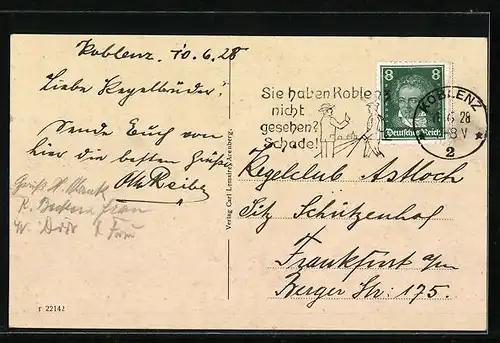 Koblenz. 10.6.28
Liebe Kegelbrüder!
Sende Euch von
hier die besten Grüße
Otto Reibe
Gruß H.
R. Frau
Frau
r 22142
Verlag Carl Lensing, Arenberg.
Sie haben Koblenz
nicht
gesehen?
Schade!
8 8
Deutsches Reich
KOBLENZ
6. 28
8 V
*
2
Kegelclub Astloch
Sitz Schützenhof
Frankfurt a/m
Berger Str: 175.